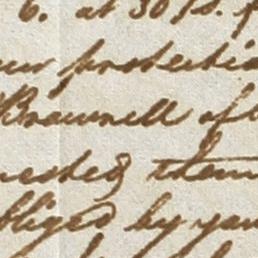 6. at 30/s. p
our protectio
Brownell of
ested them
bliged by you